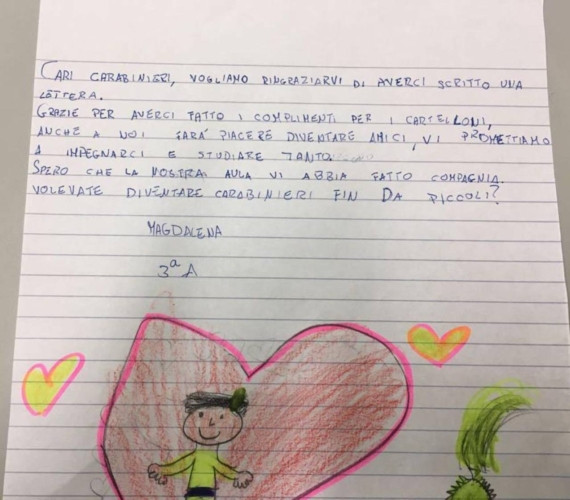 CARI CARABINIERI, VOGLIAMO RINGRAZIARVI DI AVERCI SCRITTO UNA
LETTERA.
GRAZIE PER AVERCI FATTO I COMPLIMENTI PER I CARTELLONI,
ANCHE A NOI FARÀ PIACERE DIVENTARE AMICI, VI PROMETTIAMO
A IMPEGNARCI E STUDIARE TANTO
SPERO CHE LA NOSTRA AULA VI ABBIA FATTO COMPAGNIA.
VOLEVATE DIVENTARE CARABINIERI FIN DA PICCOLI?
MAGDALENA
3ª A